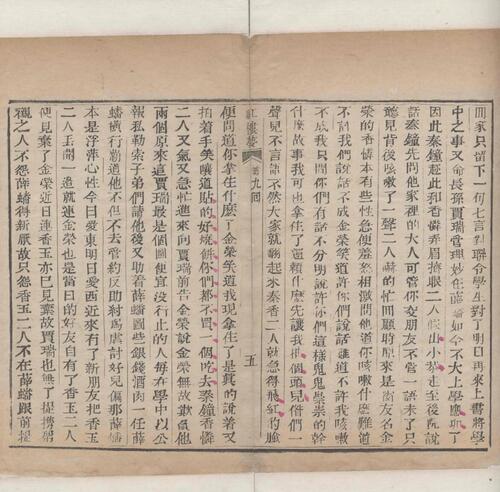 回家只留下一句七言對聯令學生對了明日再來上書將學
中之事又命長孫賈瑞管理妙在薛蟠如今不大上學應卯了
因此秦鐘趁此和香憐弄眉擠眼二人假出小恭走至後院說
話秦鐘先問他家裡的大人可管你交朋友不管一語未了只
聽見背後咳嗽了一聲二人嚇的忙回顧時原來是窗友名金
榮的香憐本有些性急便羞怒相激問他道你咳嗽什麼難道
不許我們說話不成金榮笑道許你們說話難道不許我咳嗽
不成我只問你們有話不分明說許你們這樣鬼鬼祟祟的幹
什麼故事我可也拿住了還賴什麼先讓我抽個頭兒偺們一
聲兒不言語不然大家就翻起來秦香二人就急得飛紅的臉
紅樓夢 第九回 五
便問道你拿住什麼了金榮笑道我現拿住了是真的說着又
拍着手笑嚷道貼的好燒餅你們都不買一個吃去秦鐘香憐
二人又氣又急忙進來向賈瑞前告金榮說金榮無故欺負他
兩個原來這賈瑞最是個圖便宜沒行止的人每在學中以公
報私勒索子弟們請他後又助着薛蟠圖些銀錢酒肉一任薛
蟠橫行霸道他不但不去管約反助紂爲虐討好兒偏那薛蟠
本是浮萍心性今日愛東明日愛西近來有了新朋友把香玉
二人丟開一邊就連金榮也是當日的好友自有了香玉二人
便見棄了金榮近日連香玉亦已見棄故賈瑞也無了提攜帮
襯之人不怨薛蟠得新厭故只怨香玉二人不在薛蟠跟前提